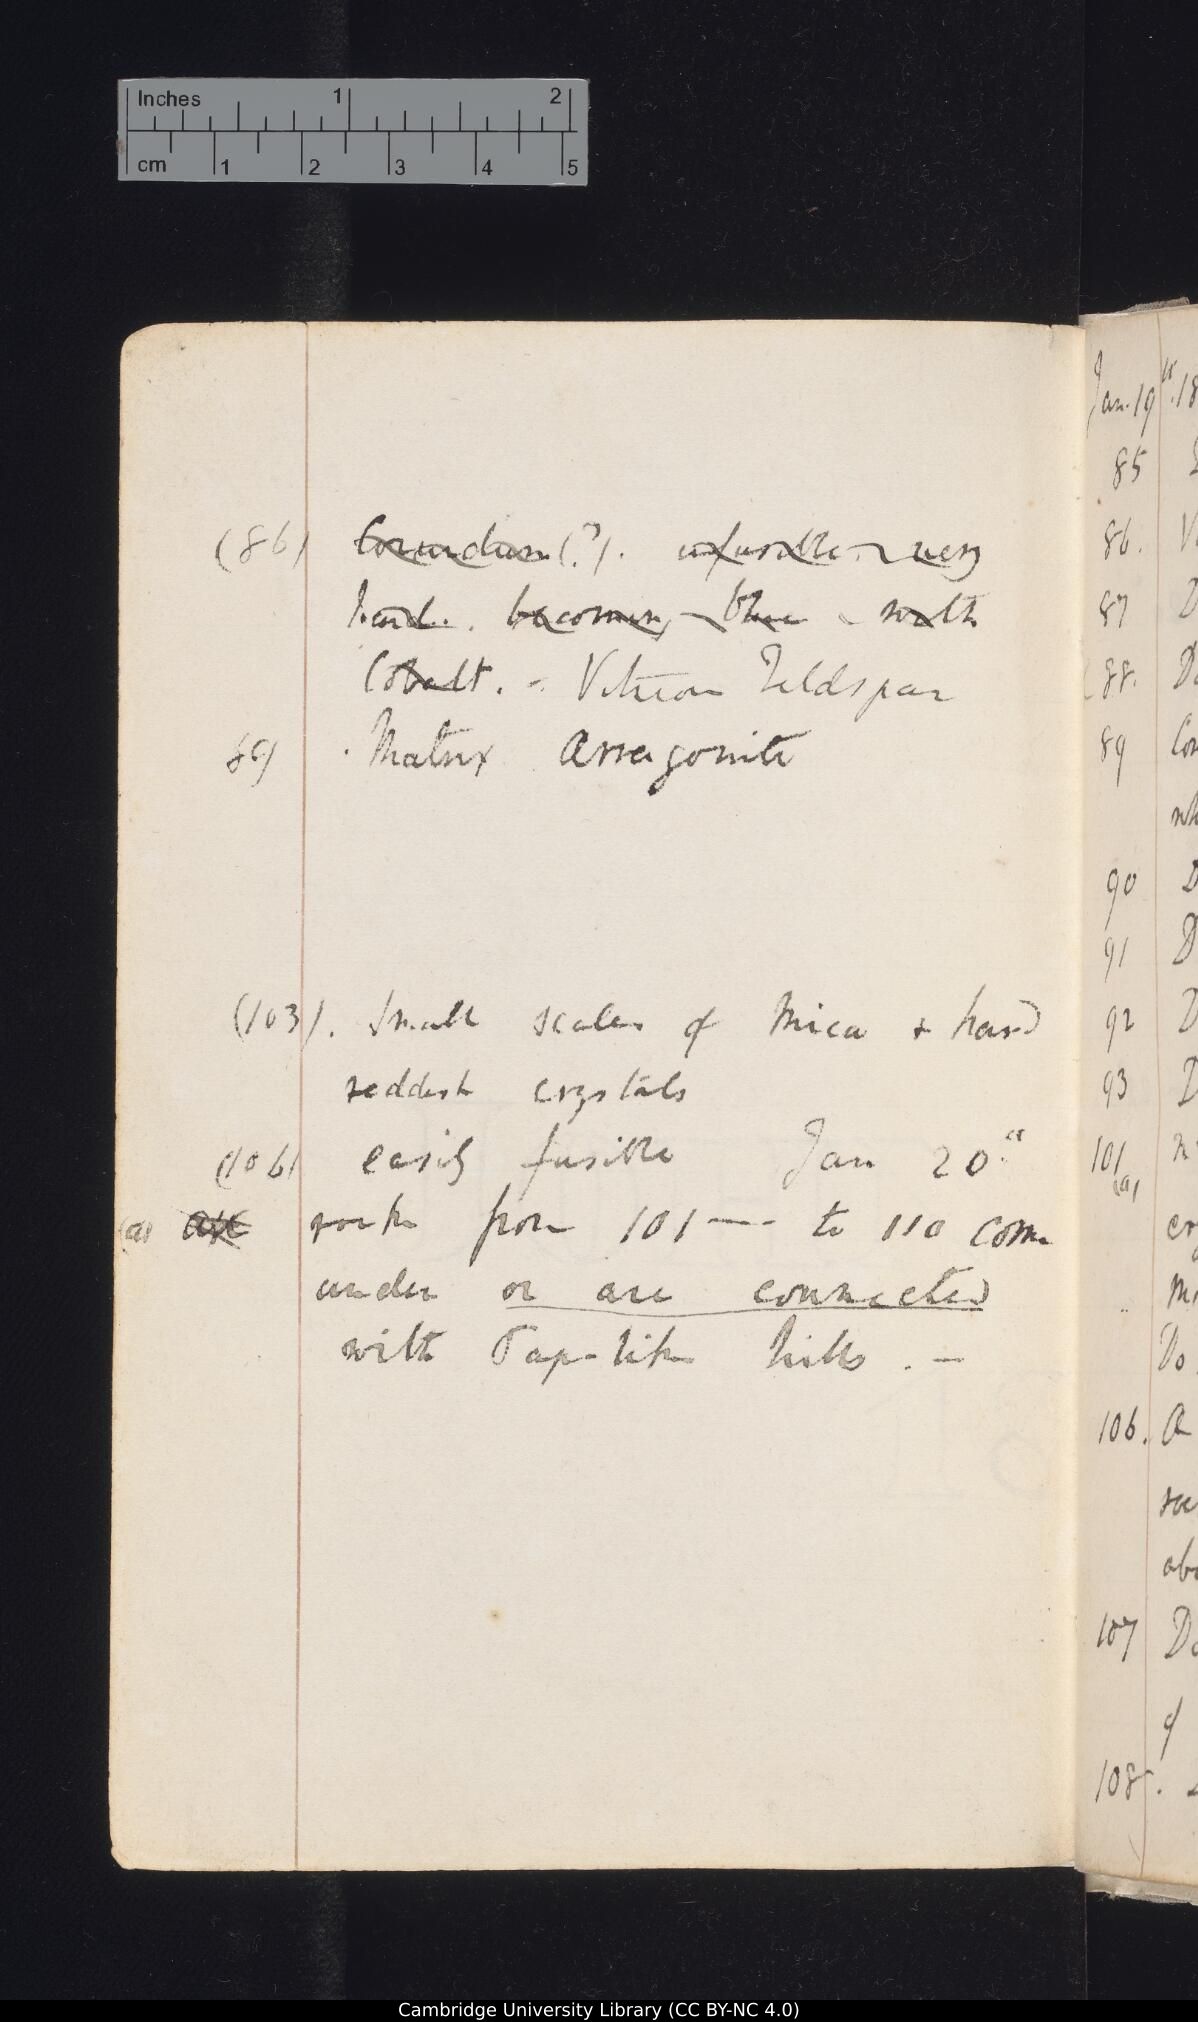 Inches 1 2
cm 1 2 3 4 5
(86) Corundum (?). infusible very
hard. becoming blue with
Cobalt. - Vitreous Feldspar
89) Matrix Arragonite
(103). Small scales of Mica & hard
reddish crystals
(106) easily fusible Jan 20th
(a) All rocks from 101 --- to 110 come
under or are connected
with Trap-like hills . —
Jan. 19th. 18
85
86. V
87 D
88. Do
89 Con
wh
90 D
91 D
92 D
93 D
101
(a)
cry
Mi
Do
106. A
roc
abo
107 Do
of
108.
Cambridge University Library (CC BY-NC 4.0)